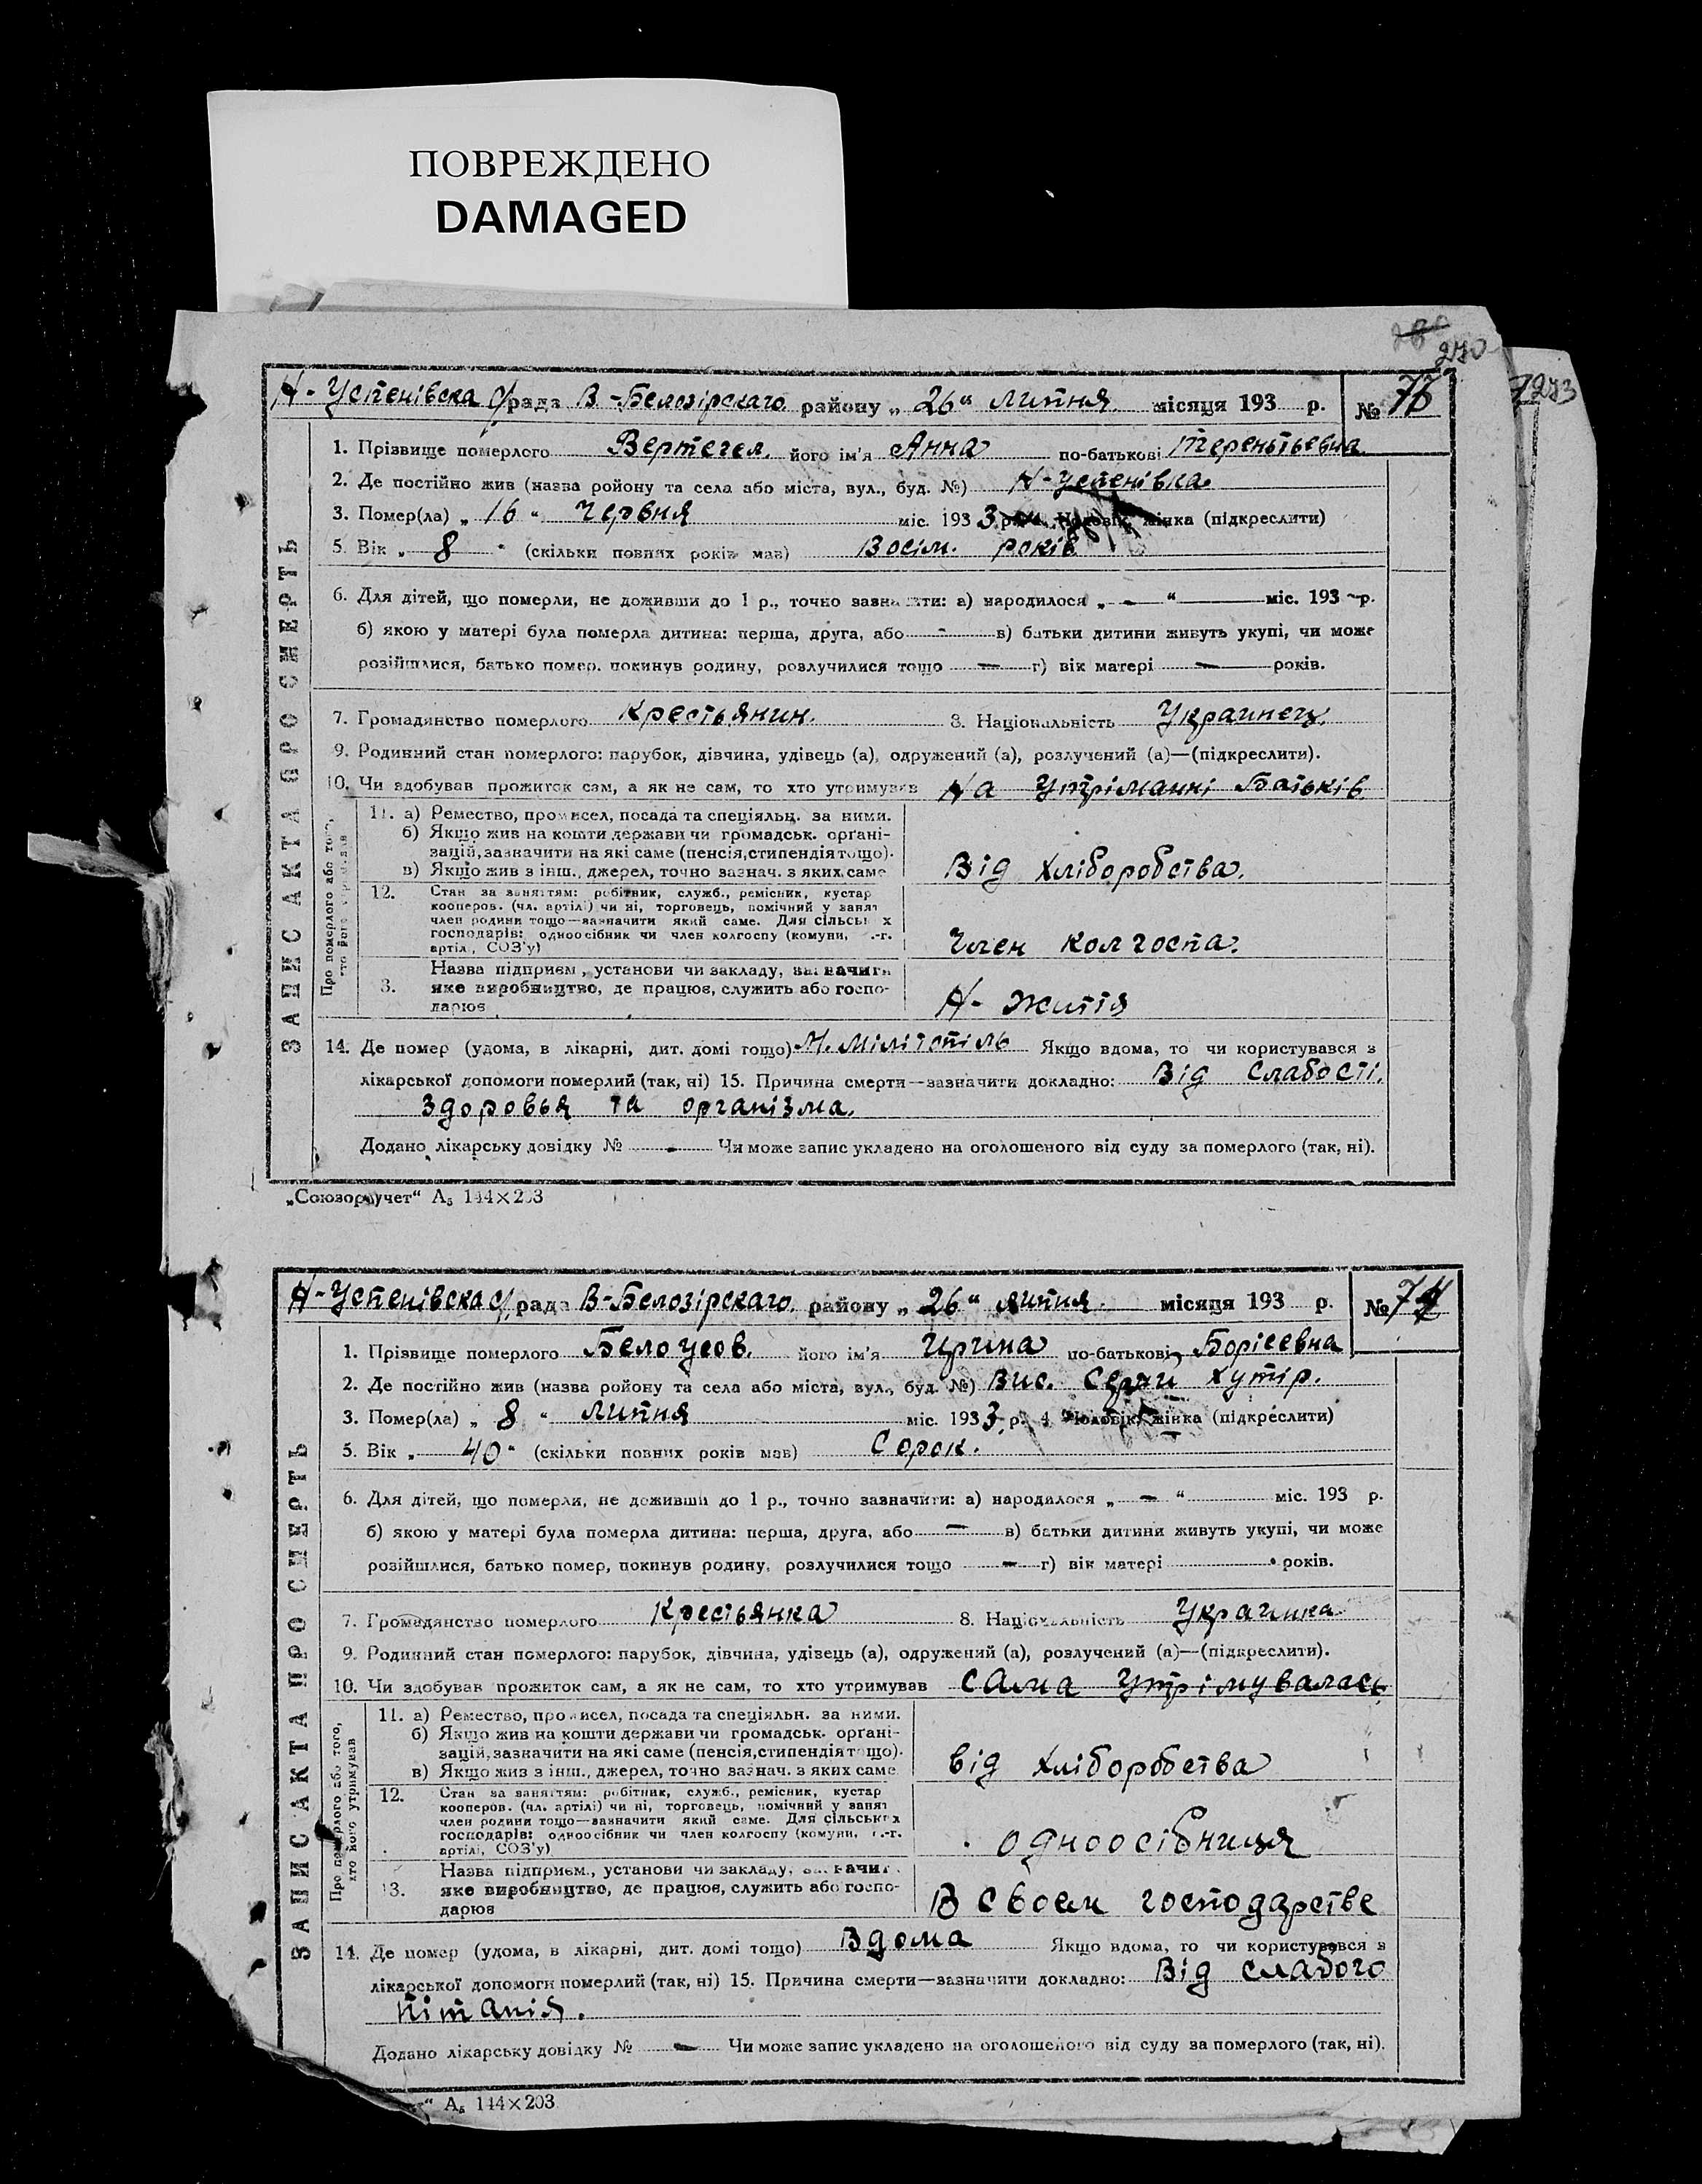 ПОВРЕЖДЕНО
DAMAGED
270
7273
Н-Успенівска с/рада В-Белозірскаго району „ 26 “ липня місяця 193 р. №
1. Прізвище померлого Вертегел. його ім'я Анна по-батькові Терентьевна
2. Де постійно жив (назва ройону та села або міста, вул., буд. №) Н-Успенівка.
3. Помер(ла) „ 16 “ Червня міс. 193 3 р. 4. Чоловік, жінка (підкреслити)
5. Вік „ 8 “ (скільки повних років мав) Восім. років
6. Для дітей, що померли, не доживши до 1 р., точно зазначити: а) народилося „ — “ — міс. 193 р.
б) якою у матері була померла дитина: перша, друга, або - в) батьки дитини живуть укупі, чи може
розійшлися, батько помер. покинув родину, розлучилися тощо — г) вік матері — років.
7. Громадянство померлого Крестьянин. 8. Національність Украинец.
9. Родинний стан померлого: парубок, дівчина, удівець (а), одружений (а), розлучений (а)—(підкреслити).
10. Чи здобував прожиток сам, а як не сам, то хто утримував На Утріманні Батьків
ЗАПИС АКТА ПРО СМЕРТЬ
Про померлого або того, хто його утримував
11. а) Ремество, промисел, посада та спеціяльн. за ними.
б) Якщо жив на кошти держави чи громадськ. орґані-
зацій, зазначити на які саме (пенсія, стипендія тощо).
в) Якщо жив з інш., джерел, точно зазнач. з яких саме
Від хліборобства.
12. Стан за заняттям: робітник, служб., ремісник, кустар
кооперов. (чл. артілі) чи ні, торговець, помічний у занят
член родини тощо—зазначити який саме. Для сільських
господарів: одноосібник чи член колгоспу (комуни, с.-г.
артілі, СОЗ'у)
Член колгоспа.
13. Назва підприєм., установи чи закладу, зазначити
яке виробництво, де працює, служить або госпо-
дарює
Н- життя
14. Де помер (удома, в лікарні, дит. домі тощо) М. Мілітопіль Якщо вдома, то чи користувався з
лікарської допомоги померлий (так, ні) 15. Причина смерти—зазначити докладно: Від Слабості.
здоровья та организма.
Додано лікарську довідку № — Чи може запис укладено на оголошеного від суду за померлого (так, ні).
„Союзоргучет“ А₅ 144×203
Н-Успенівска с/рада В-Белозірскаго. району „ 26 “ липня. місяця 193 р. № 74
1. Прізвище померлого Белоусов. його ім'я Ирина по-батькові Борісевна
2. Де постійно жив (назва ройону та села або міста, вул., буд. №) Вис. хутір.
3. Помер(ла) „ 8 “ липня міс. 193 3 р. 4 Чоловік, жінка (підкреслити)
5. Вік „ 40 “ (скільки повних років мав) Сорок.
6. Для дітей, що померли, не доживши до 1 р., точно зазначити: а) народилося „ — “ міс. 193 р.
б) якою у матері була померла дитина: перша, друга, або — в) батьки дитини живуть укупі, чи може
розійшлися, батько помер, покинув родину, розлучилися тощо — г) вік матері років.
7. Громадянство померлого Крестьянка 8. Національність Украинка
9. Родинний стан померлого: парубок, дівчина, удівець (а), одружений (а), розлучений (а)—(підкреслити).
10. Чи здобував прожиток сам, а як не сам, то хто утримував сама утрімувалась
ЗАПИС АКТА ПРО СМЕРТЬ
Про померлого або того, хто його утримував
11. а) Ремество, промисел, посада та спеціяльн. за ними.
б) Якщо жив на кошти держави чи громадськ. орґані-
зацій, зазначити на які саме (пенсія, стипендія тощо).
в) Якщо жив з інш., джерел, точно зазнач. з яких саме
від хліборобства
12. Стан за заняттям: робітник, служб., ремісник, кустар
кооперов. (чл. артілі) чи ні, торговець, помічний у занят
член родини тощо—зазначити який саме. Для сільських
господарів: одноосібник чи член колгоспу (комуни, с.-г.
артілі, СОЗ'у)
одноосібниця
13. Назва підприєм., установи чи закладу, зазначит
яке виробництво, де працює, служить або госпо-
дарює
В своем господарстве
14. Де помер (удома, в лікарні, дит. домі тощо) Вдома Якщо вдома, то чи користувався з
лікарської допомоги померлий (так, ні) 15. Причина смерти—зазначити докладно: Від слабого
пітанія.
Додано лікарську довідку № — Чи може запис укладено на оголошеного від суду за померлого (так, ні).
“ А₅ 144×203